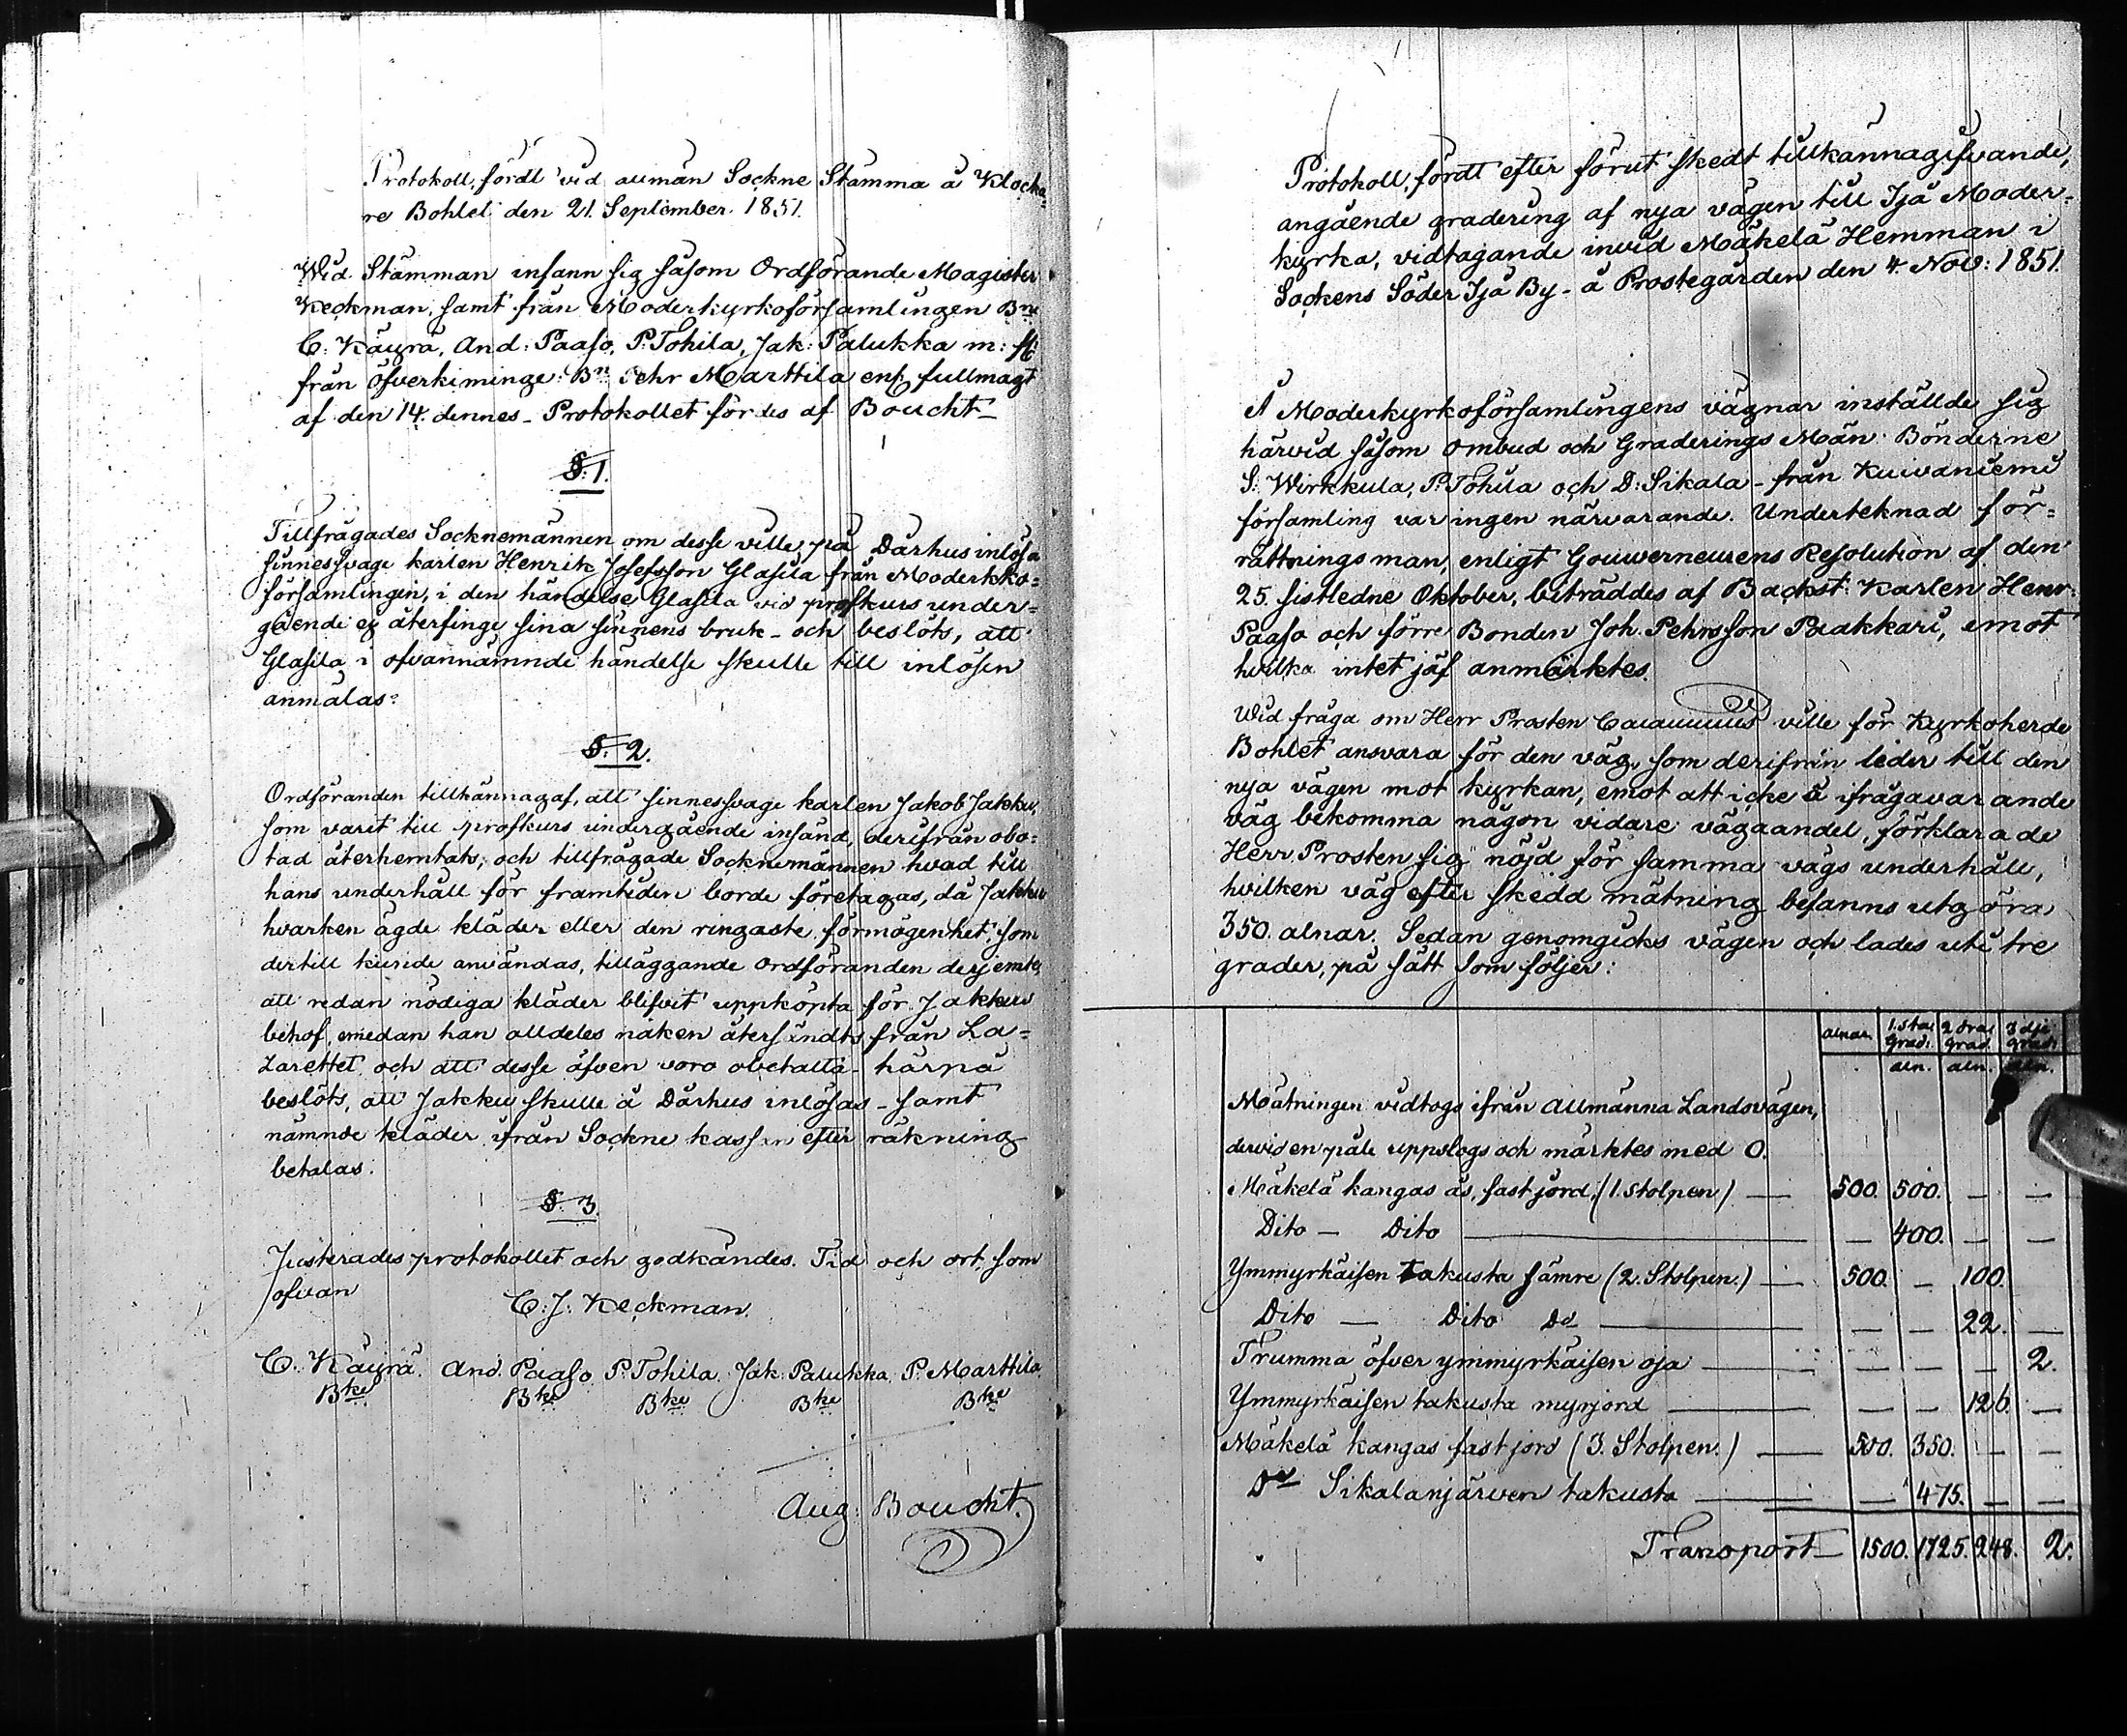 Protokoll, fördt vid allmän Sockne Stämma å Klocka-
re Bohlet den 21. September. 1851.
Wid Stämman infann sig såsom Ordförande Magister
Keckman, samt från Moderkyrkoförsamlingen Bne
C: Käyrä, And: Paaso, P: Tohila, Jak: Palukka m: fl:
från Öfverkiminge: Bn Pehr Marttila enl. fullmagt
af den 14. dennes - Protokollet fördes af Boucht -
§. 1.
Tillfrågades Socknemännen om desse ville, på Dårhus inlösa
sinnessvage karlen Henrik Josefsson Glasila från Moderkko-
församlingen, i den händelse Glasila vid profkurs under-
gående ej återfinge sina sinnens bruk - och beslöts, att
Glasila i ofvannämnde händelse skulle till inlösen
anmälas.
§. 2.
Ordföranden tillkännagaf, att sinnessvage karlen Jakob Jakku,
som varit till profkurs undergående insänd, derifrån obo-
tad återhemtats, och tillfrågade Socknemännen hvad till
hans underhåll för framtiden borde företagas, då Jakku
hvarken ägde kläder eller den ringaste förmögenhet, som
dertill kunde användas, tilläggande Ordföranden derjemte,
att redan nödiga kläder blifvit uppköpta för Jakkus
behof, emedan han alldeles naken återsändts från La-
zarettet och att desse äfven voro obetalta - härpå
beslöts, att Jakku skulle å Dårhus inlösas - samt
nämnde kläder ifrån Sockne kassan efter räkning
betalas.
§. 3.
Justerades protokollet och godkändes. Tid och ort, som
ofvan
C: J: Keckman.
C. Käyrä. And. Paaso P. Tohila Jak: Palukka. P. Marttila.
Bke Bke Bke Bke Bke
Aug. Boucht.
Protokoll, fördt efter förut skedt tillkännagifvande,
angående gradering af nya vägen till Ijå Moder-
kyrka, vidtagande invid Mäkelä Hemman i
Sockens Söder Ijå By - å Prostegården den 4. Nov: 1851.
Å Moderkyrkoförsamlingens vägnar inställde sig
härvid såsom Ombud och Graderings Män Bönderne
S: Wirkkula, P: Tohila och D: Sikala - från Kuivaniemi
församling var ingen närvarande. Underteknad för-
rättningsman, enligt Gouverneurens Resolution af den
25. sistledne Oktober, biträddes af Backst: Karlen Henr:
Paaso och förre Bonden Joh. Pehrsson Paakkari, emot
hvilka intet jäf anmärktes.
Wid fråga om Herr Prosten Calamnius ville för Kyrkoherde
Bohlet ansvara för den väg, som derifrån leder till den
nya vägen mot kyrkan, emot att icke å ifrågavarande
väg bekomma någon vidare vägaandel, förklarade
Herr Prosten sig nöjd för samma vägs underhåll,
hvilken väg efter skedd mätning befanns utgöra
350. alnar. Sedan genomgicks vägen och lades uti tre
grader, på sätt som följer:
alnar. 1.sta grad. 2 dra grad. 3 dje grad.
aln. aln. aln.
Mätningen vidtogs ifrån Allmänna Landsvägen,
dervid en påle uppslogs och märktes med O.
Mäkelä kangas ås, fast jord. (1. Stolpen.) — 500. 500. — —
Dito — Dito — — 400. — —
Ymmyrkäisen takusta sämre (2. Stolpen.) — 500. — 100.
Dito — Dito Do — — — 22. —
Trumma öfver ymmyrkäisen oja — — — — 2.
Ymmyrkäisen takusta myrjord — — — 126. —
Mäkelä kangas fast jord (3. Stolpen.) — 500. 350. — —
Do Sikalanjärven takusta — — 475. — —
Transport — 1500. 1725. 248. 2.